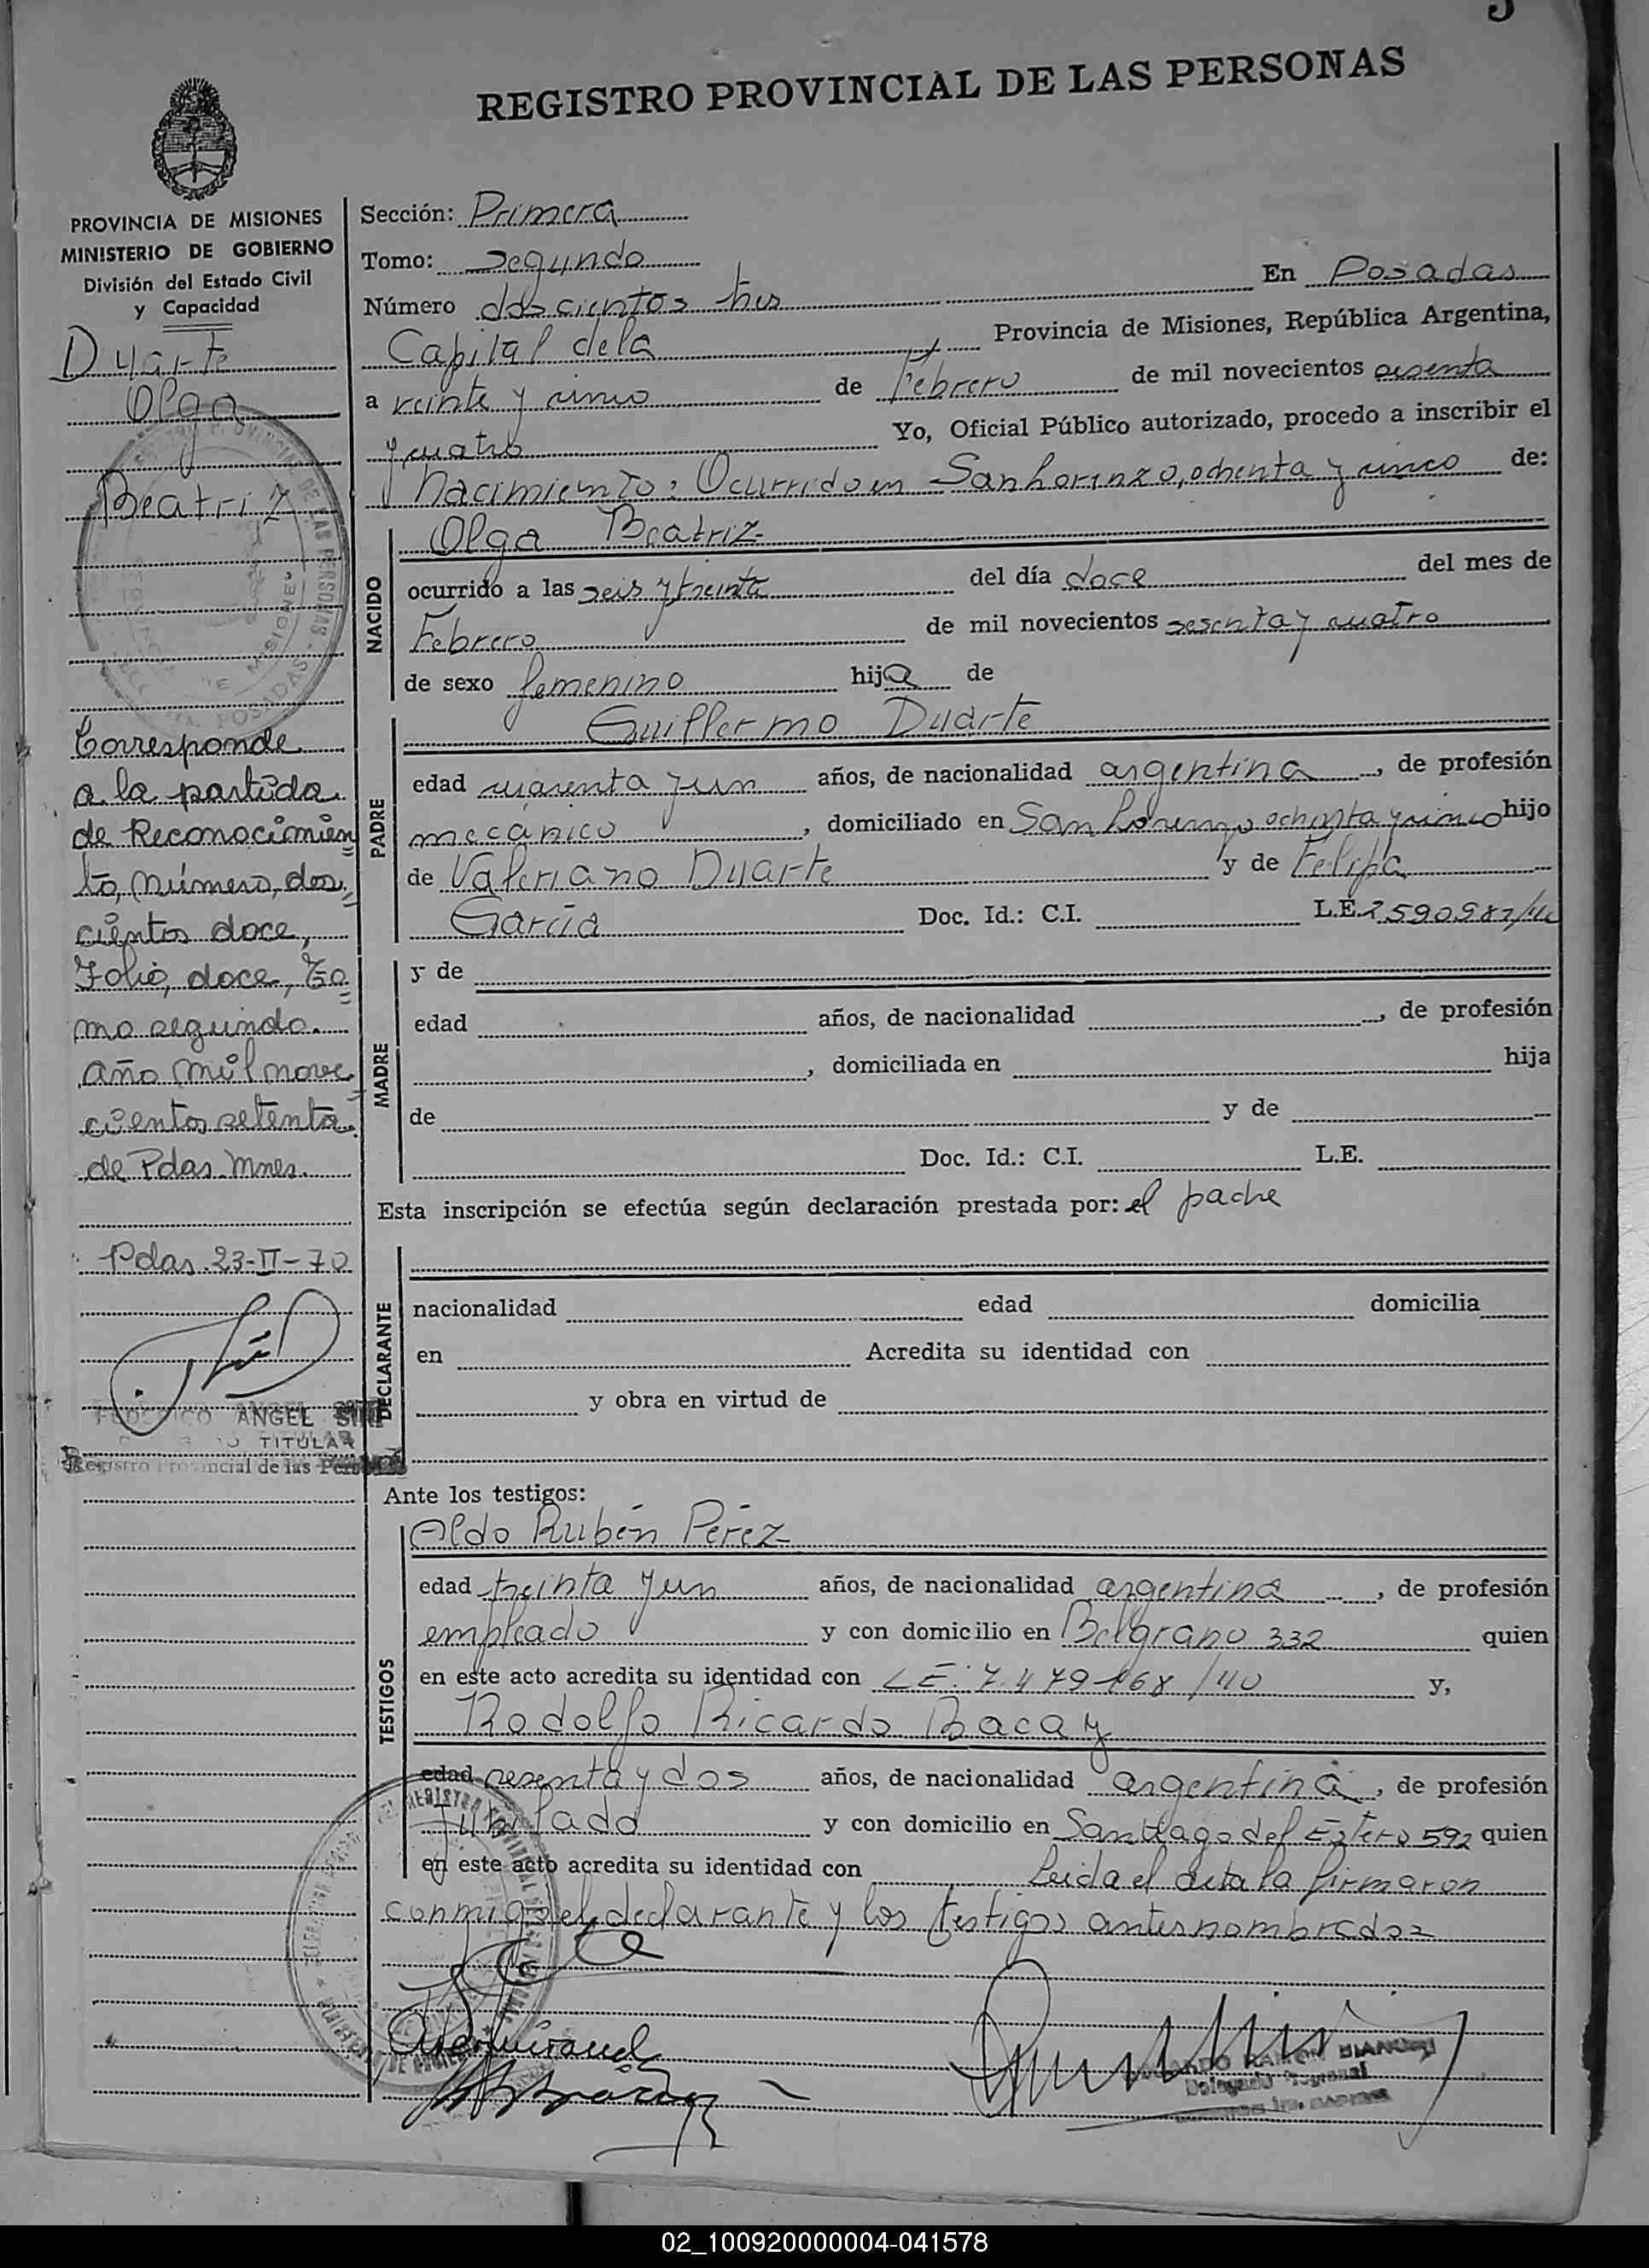 REGISTRO PROVINCIAL DE LAS PERSONAS
PROVINCIA DE MISIONES
MINISTERIO DE GOBIERNO
División del Estado Civil
y Capacidad
Duarte
Olga
Beatriz
Corresponde
a la partida
de Reconocimien
to, número, dos
cientos doce,
Folio, doce, To
mo segundo.
año mil nove
cientos setenta.
de Pdas. Mnes.
Pdas. 23-II-70
ANGEL
TITULAR
Registro Provincial de las
Sección: Primera
Tomo: Segundo
Número doscientos tres En Posadas
Capital de la Provincia de Misiones, República Argentina,
a veinte y cinco de Febrero de mil novecientos sesenta
y cuatro Yo, Oficial Público autorizado, procedo a inscribir el
nacimiento: Ocurrido en San Lorenzo, ochenta y cinco de:
NACIDO
Olga Beatriz
ocurrido a las seis y treinta del día doce del mes de
Febrero de mil novecientos sesenta y cuatro
de sexo femenino hija de
PADRE
Guillermo Duarte
edad cuarenta y un años, de nacionalidad argentina, de profesión
mecánico, domiciliado en San Lorenzo ochenta y cinco hijo
de Valeriano Duarte y de Felipa
García Doc. Id.: C.I. L.E.
MADRE
y de
edad años, de nacionalidad , de profesión
, domiciliada en hija
de y de
Doc. Id.: C.I. L.E.
Esta inscripción se efectúa según declaración prestada por: el padre
DECLARANTE
nacionalidad edad domicilia
en Acredita su identidad con
y obra en virtud de
Ante los testigos:
TESTIGOS
Aldo Rubén Pérez
edad treinta y un años, de nacionalidad argentina, de profesión
empleado y con domicilio en Belgrano 332 quien
en este acto acredita su identidad con LE. y,
Rodolfo Ricardo Bacay
edad sesenta y dos años, de nacionalidad argentina, de profesión
Jubilado y con domicilio en Santiago del Estero 592 quien
en este acto acredita su identidad con Leida el acta la firmaron
conmigo el declarante y los testigos antes nombrados=
02_100920000004-041578